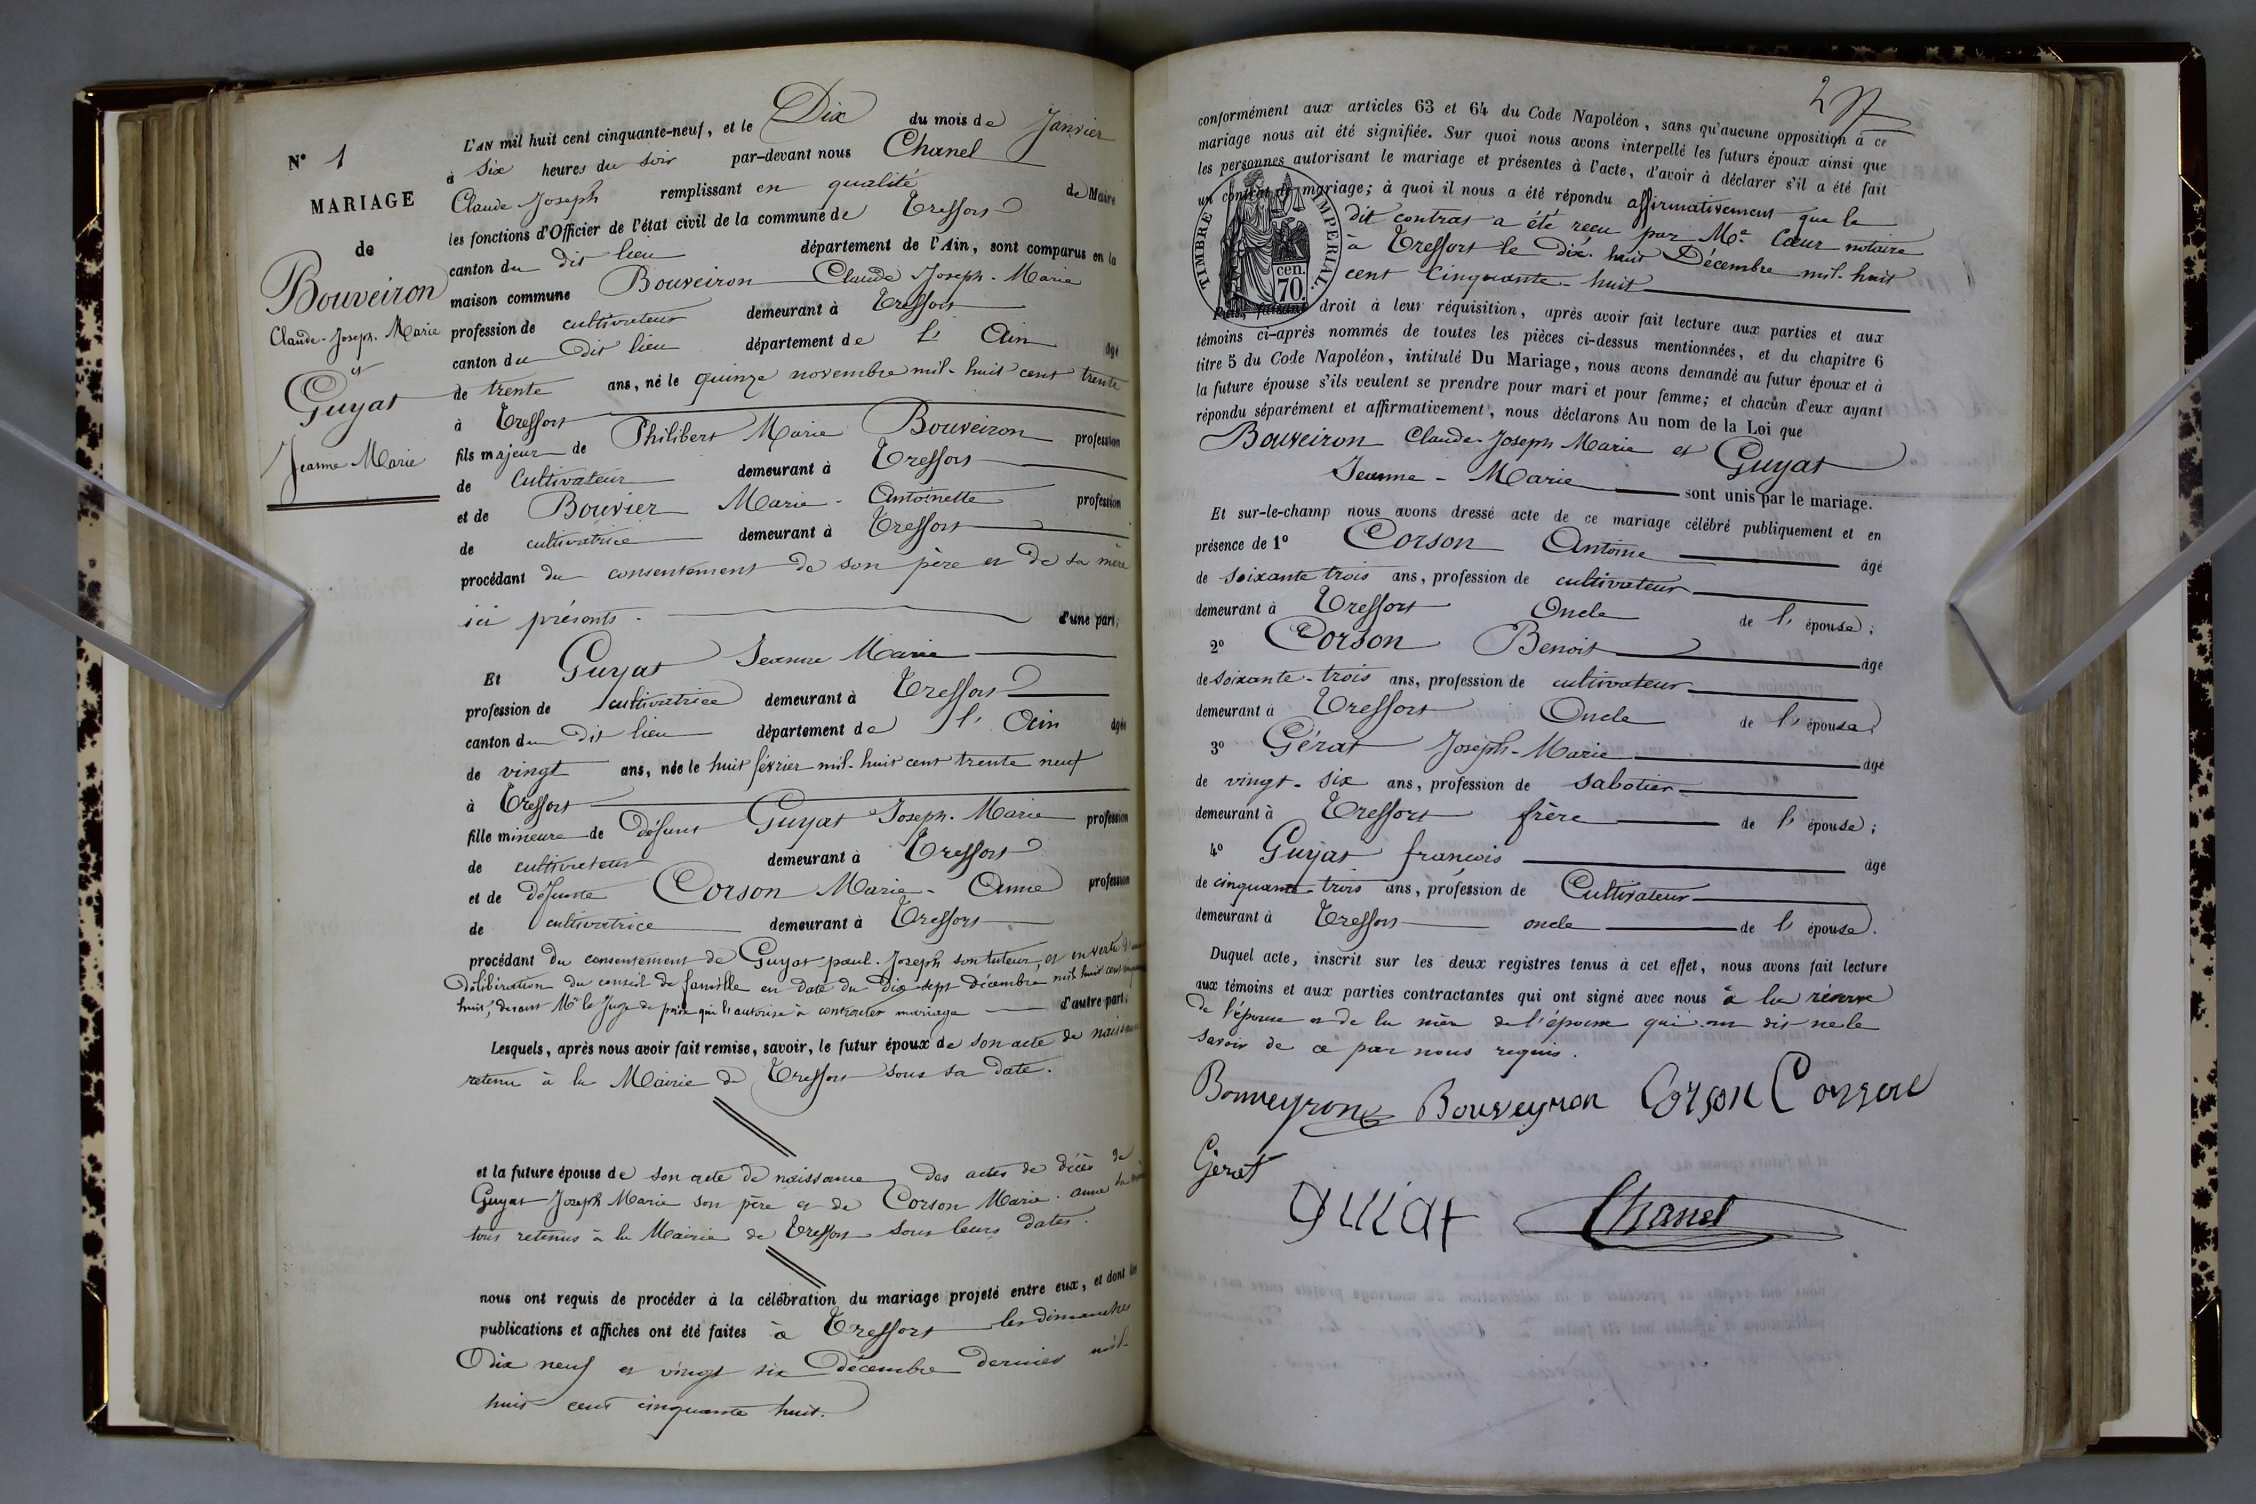 N° 1
MARIAGE
de
Bouveiron
Claude-Joseph-Marie
et
Guyat
Jeanne Marie
L'AN mil huit cent cinquante-neuf, et le Dix du mois de Janvier
à six heures du soir par-devant nous Chanel
Claude Joseph remplissant en qualité de Maire
les fonctions d'Officier de l'état civil de la commune de Treffort
canton du dit lieu département de l'Ain, sont comparus en la
maison commune Bouveiron Claude Joseph-Marie
profession de cultivateur demeurant à Treffort
canton du Dit lieu département de l'Ain âgé
de trente ans, né le quinze novembre mil-huit cent trente
à Treffort
fils majeur de Philibert Marie Bouveiron profession
de Cultivateur demeurant à Treffort
et de Bouvier Marie-Antoinette profession
de cultivatrice demeurant à Treffort
procédant du consentement de son père et de sa mère
ici présents. d'une part;
Et Guyat Jeanne Marie
profession de cultivatrice demeurant à Treffort
canton du Dit lieu département de l'Ain âgée
de vingt ans, née le huit février mil-huit cent trente neuf
à Treffort
fille mineure de défunt Guyat Joseph-Marie profession
de cultivateur demeurant à Treffort
et de défunte Corson Marie-Anne profession
de cultivatrice demeurant à Treffort
procédant du consentement de Guyat paul-Joseph son tuteur, et en vertu
Délibération du conseil de famille en date du Dix sept décembre mil huit cent
huit, devant Mr le Juge de paix qui l'autorise à contracter mariage d'autre part;
Lesquels, après nous avoir fait remise, savoir, le futur époux de son acte de naissance
retenu à la Mairie de Treffort sous sa date.
et la future épouse de son acte de naissance, des actes de décès de
Guyat Joseph Marie son père et de Corson Marie-anne sa
tous retenus à la Mairie de Treffort sous leurs dates.
nous ont requis de procéder à la célébration du mariage projeté entre eux, et dont les
publications et affiches ont été faites à Treffort les dimanches
Dix neuf et vingt six Décembre dernier mil
huit cent cinquante huit.
conformément aux articles 63 et 64 du Code Napoléon, sans qu'aucune opposition à ce
mariage nous ait été signifiée. Sur quoi nous avons interpellé les futurs époux ainsi que
les personnes autorisant le mariage et présentes à l'acte, d'avoir à déclarer s'il a été fait
un contrat de mariage; à quoi il nous a été répondu affirmativement que le
dit contrat a été reçu par Me Cœur notaire
à Treffort le Dix-huit Décembre mil-huit
cent cinquante-huit
TIMBRE IMPÉRIAL.
cen.
70.
Puis, faisant droit à leur réquisition, après avoir fait lecture aux parties et aux
témoins ci-après nommés de toutes les pièces ci-dessus mentionnées, et du chapitre 6
titre 5 du Code Napoléon, intitulé Du Mariage, nous avons demandé au futur époux et à
la future épouse s'ils veulent se prendre pour mari et pour femme; et chacun d'eux ayant
répondu séparément et affirmativement, nous déclarons Au nom de la Loi que
Bouveiron Claude-Joseph Marie et Guyat
Jeanne-Marie sont unis par le mariage.
Et sur-le-champ nous avons dressé acte de ce mariage célébré publiquement et en
présence de 1° Corson Antoine âgé
de soixante trois ans, profession de cultivateur
demeurant à Treffort Oncle de l'épouse;
2° Corson Benoit âgé
de soixante-trois ans, profession de cultivateur
demeurant à Treffort Oncle de l'épouse;
3° Gérat Joseph-Marie âgé
de vingt-six ans, profession de sabotier
demeurant à Treffort frère de l'épouse;
4° Guyat françois âgé
de cinquante-trois ans, profession de Cultivateur
demeurant à Treffort oncle de l'épouse.
Duquel acte, inscrit sur les deux registres tenus à cet effet, nous avons fait lecture
aux témoins et aux parties contractantes qui ont signé avec nous à la réserve
de l'épouse et de la mère de l'époux qui ont dit ne le
savoir de ce par nous requis.
Bouveyron Bouveyron Corson Corson
Gérat
guiat Chanel